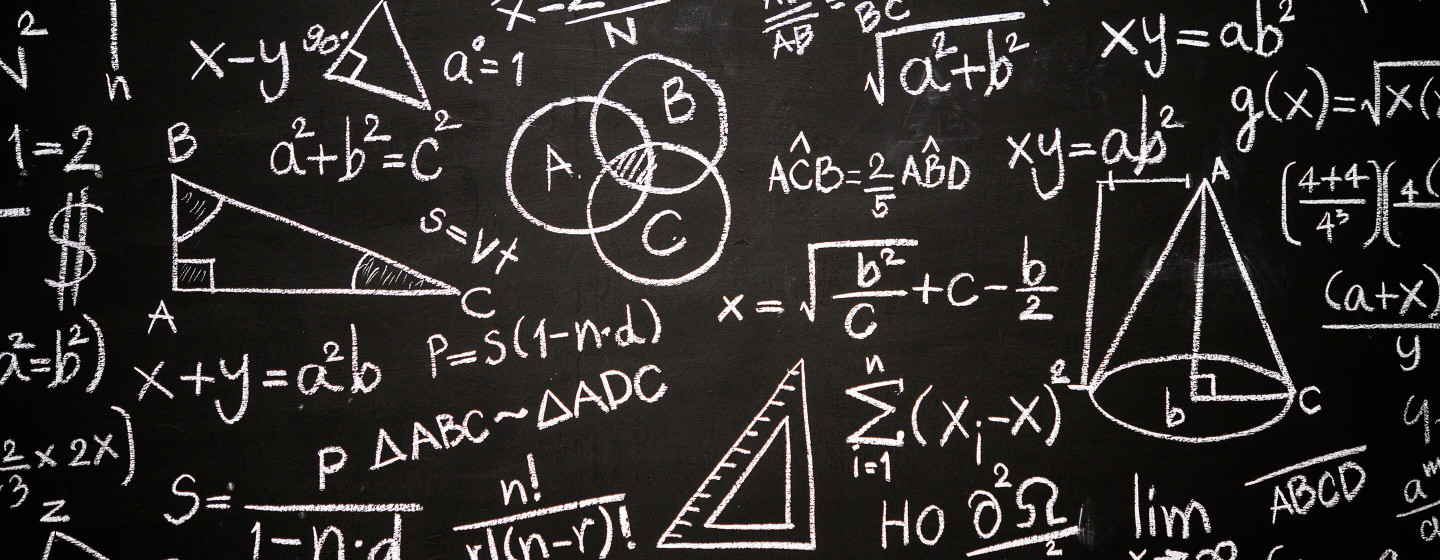 x-y
90°
a°=1
N
AB
BC
√a²+b²
xy=ab²
g(x)=√x(
1=2
B
a²+b²=c²
A
B
C
AĈB=2/5 AB̂D
xy=ab²
A
(4+4/4³)(4
$
s=vt
A
C
x=√b²/c+c-b/2
(a+x)
y
a²=b²)
x+y=a²b
P=S(1-n·d)
ΔABC~ΔADC
n
Σ(xᵢ-x)
i=1
2
b
C
x 2x)
z
S=P/1-n·d
n!/r!(n-r)!
HO
∂²Ω
lim
x→∞
ABCD
aᵐ